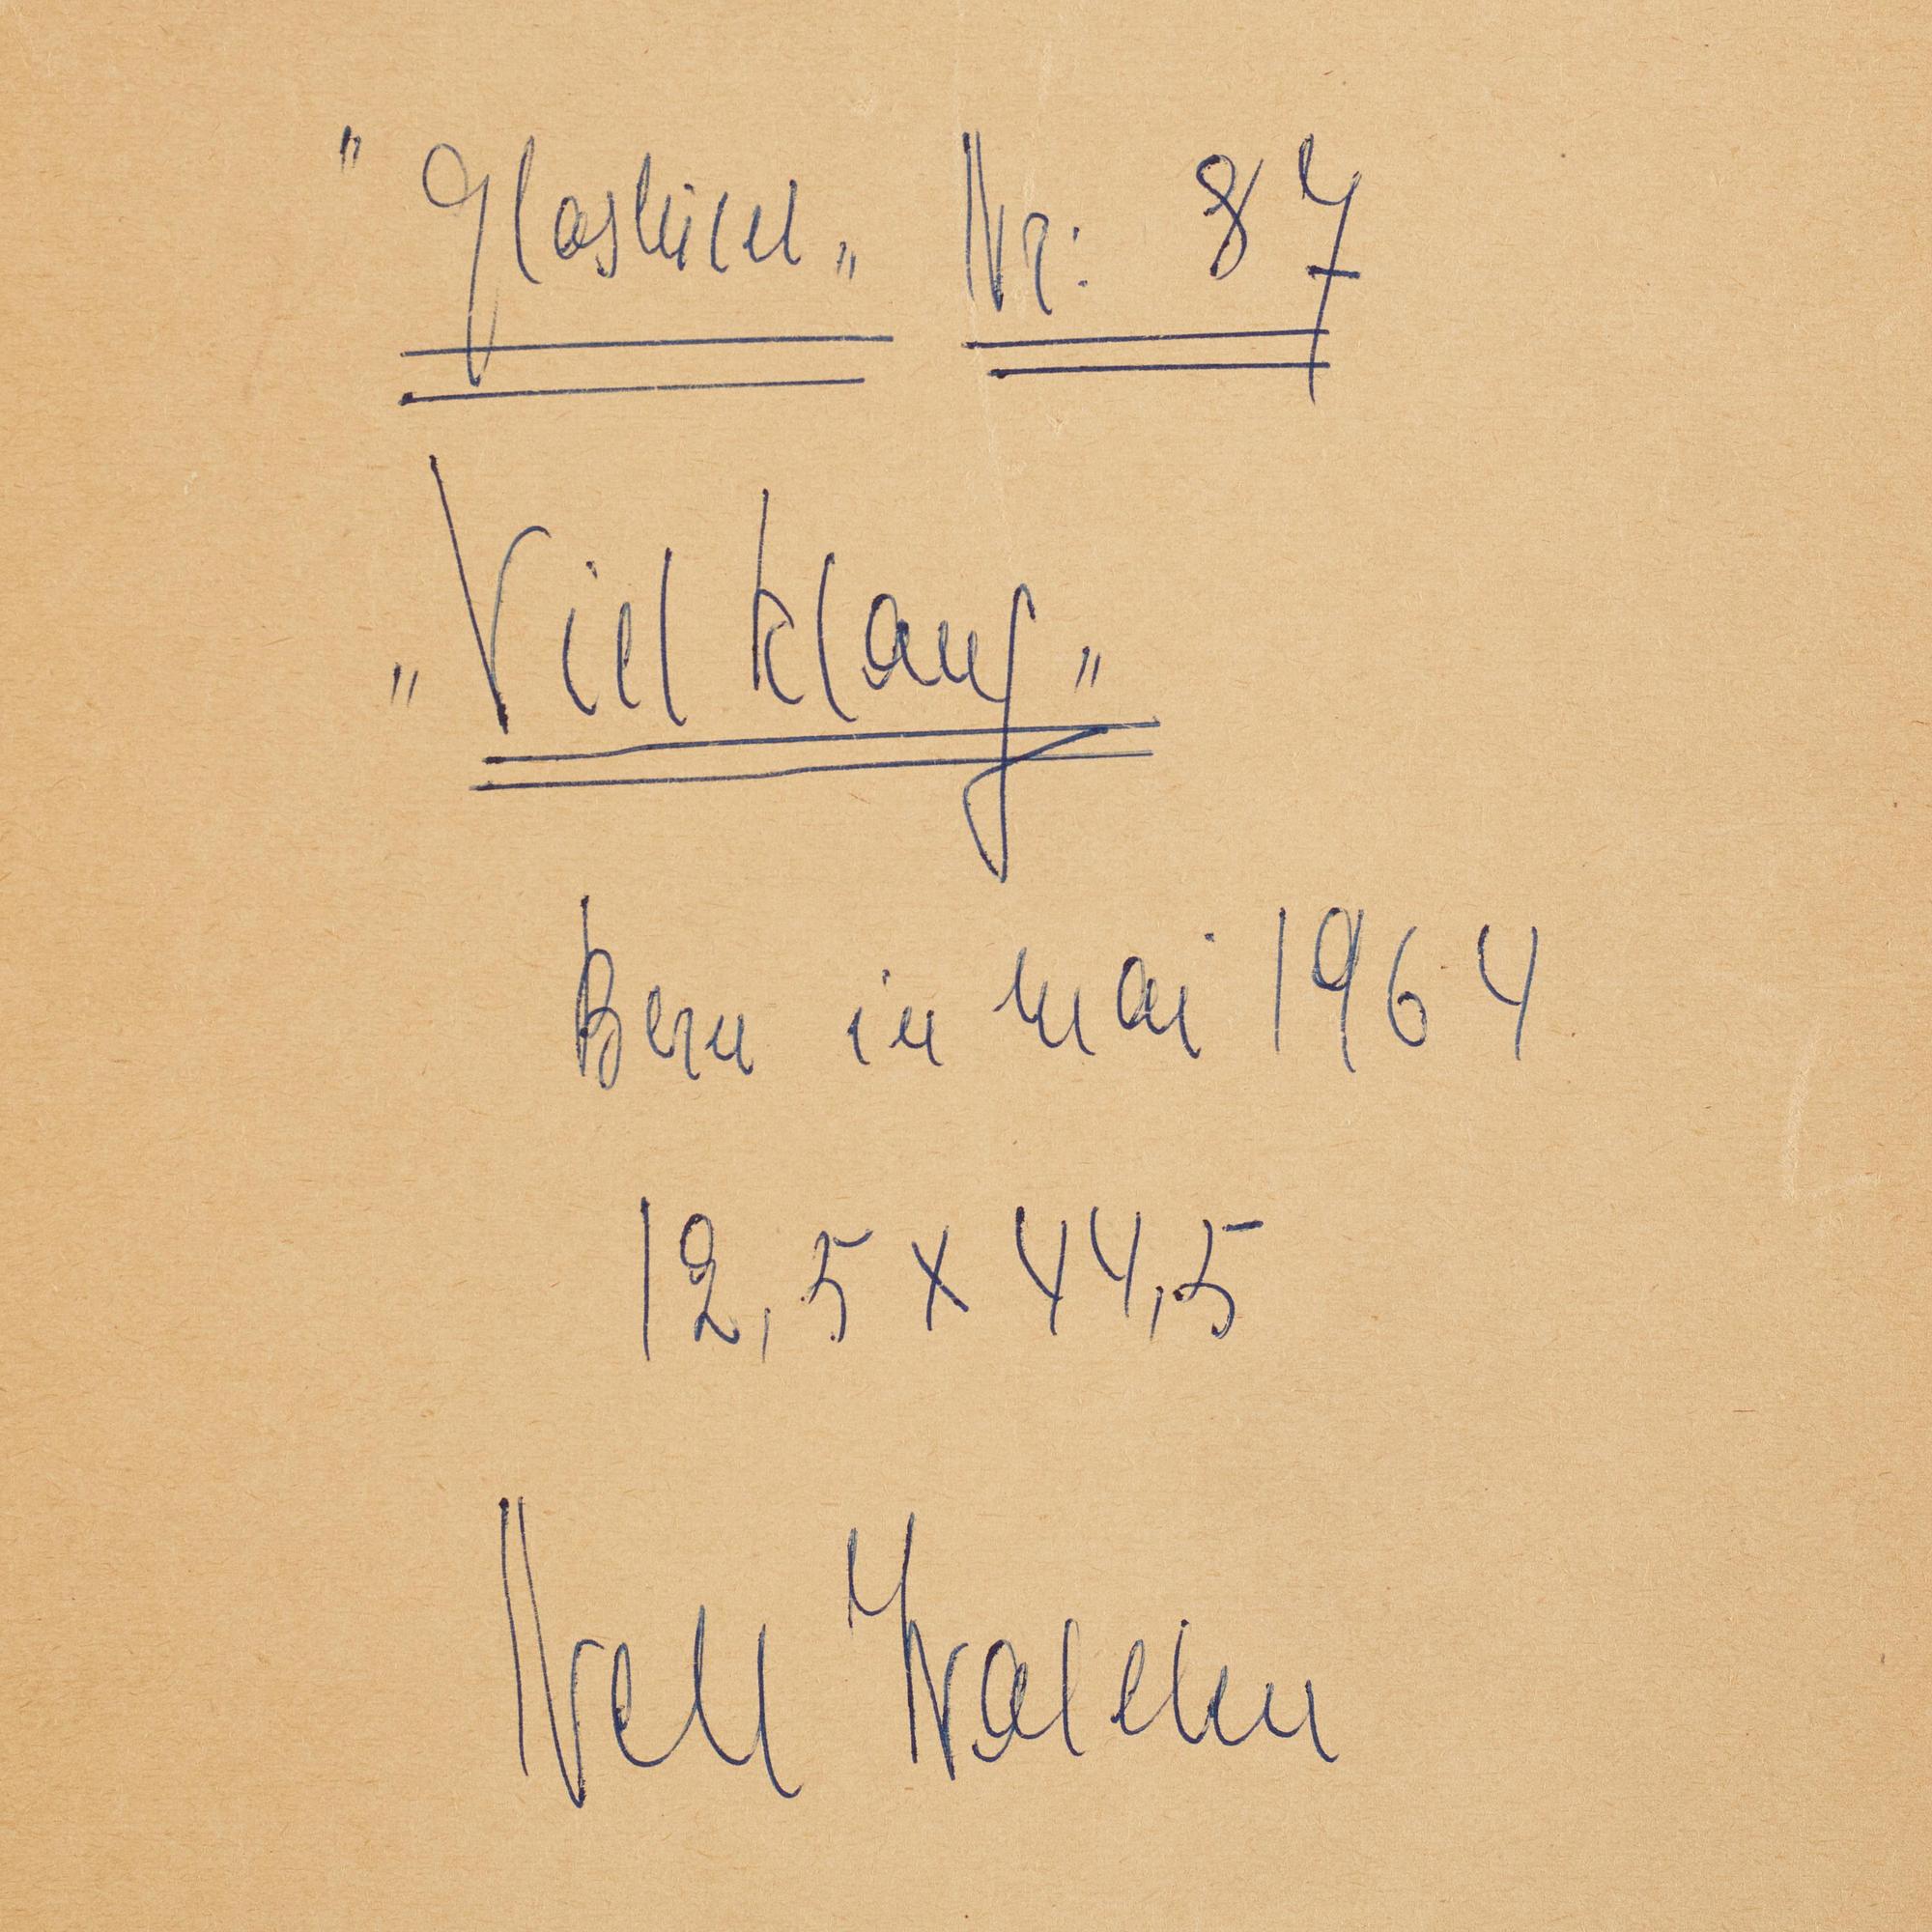 "Glasbild" Nr: 87
"Vielklang"
Bern in mai 1964
12,5 x 44,5
Nell Walden